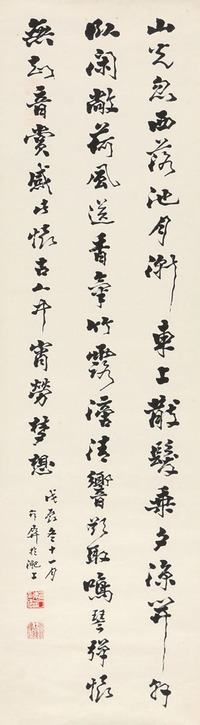 山光忽西落池月漸東上散髮乘夕涼開軒
臥閑敞荷風送香氣竹露滴清響欲取鳴琴彈恨
無知音賞感此懷古人中宵勞夢想
戊辰冬十一月
於滬上